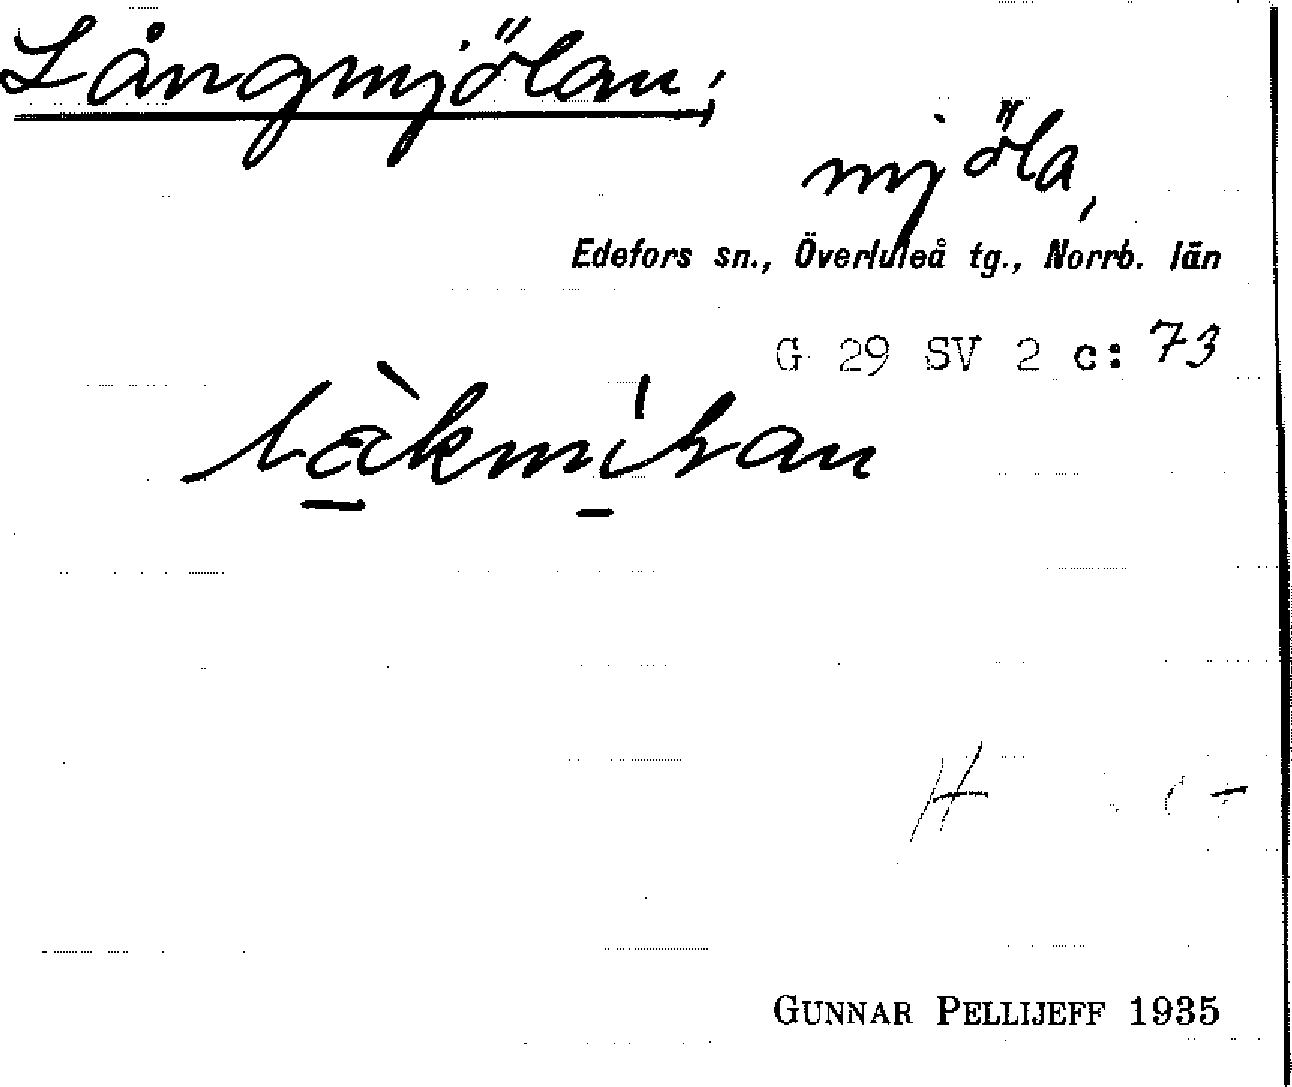 Långmjölan;
mjöla,
Edefors sn., Överluleå tg., Norrb. län
G 29 SV 2 c: 73
GUNNAR PELLIJEFF 1935